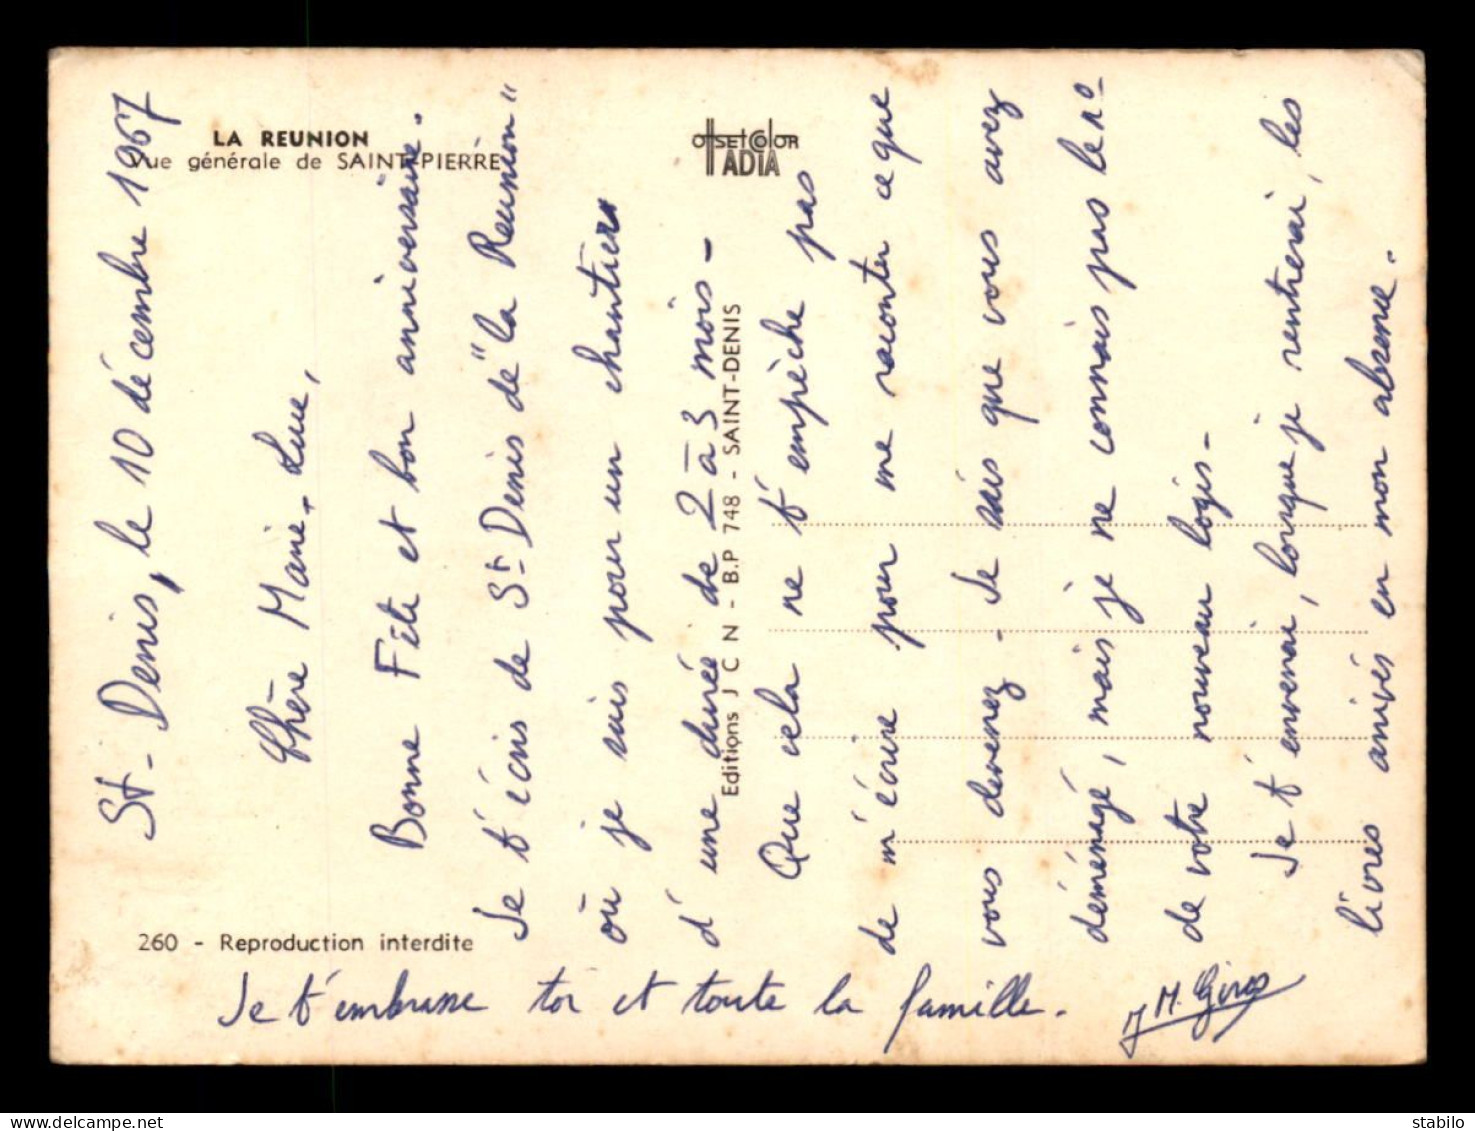 LA REUNION
Vue générale de SAINT-PIERRE
OffSETCOlOR
ADIA
Editions J C N - B.P 748 - SAINT-DENIS
260 - Reproduction interdite
St-Denis, le 10 décembre 1967
Chère Marie-Luce,
Bonne Fête et bon anniversaire.
Je t'écris de St-Denis de "la Reunion"
où je suis pour un chantier
d'une durée de 2 à 3 mois-
Que cela ne t'empèche pas
de m'écrire pour me raconter ce que
vous devenez - Je sais que vous avez
déménagé, mais je ne connais pas le no
de votre nouveau logis-
Je t'enverrai, lorsque je rentrerai, les
livres arrivés en mon absence.
Je t'embrasse toi et toute la famille.
J M.
delcampe.net
stabilo